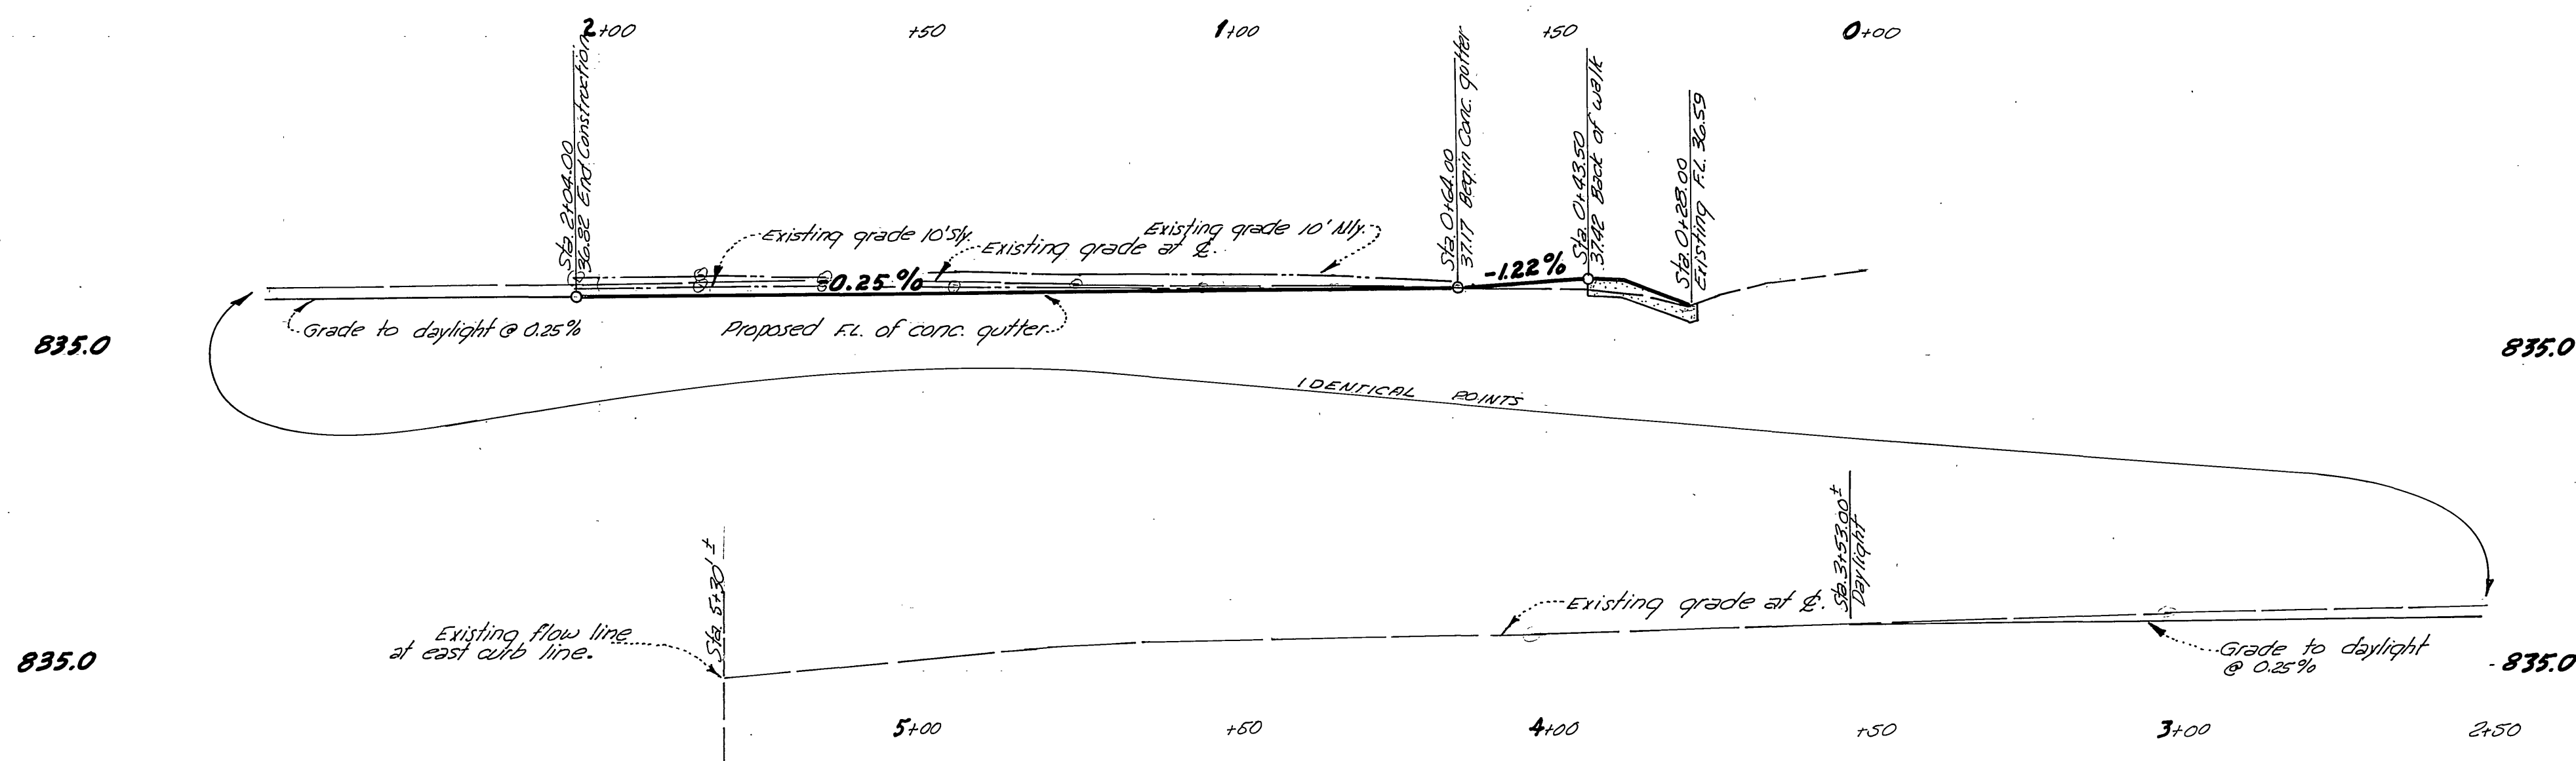 2+00 +50 1+00 +50 0+00
Sta. 2+04.00
36.82 End Construction
Sta. 0+64.00
37.17 Begin Conc. gutter
Sta. 0+43.50
37.42 Back of walk
Sta. 0+28.00
Existing F.L. 36.59
Existing grade 10' Sly.
Existing grade at ℄.
Existing grade 10' Nly.
0.25%
-1.22%
Grade to daylight @ 0.25%
Proposed F.L. of conc. gutter
835.0 835.0
IDENTICAL POINTS
Sta. 5+30' ±
Sta. 3+53.00 ±
Daylight
Existing flow line
at east curb line.
Existing grade at ℄.
Grade to daylight
@ 0.25%
835.0 835.0
5+00 +50 4+00 +50 3+00 2+50